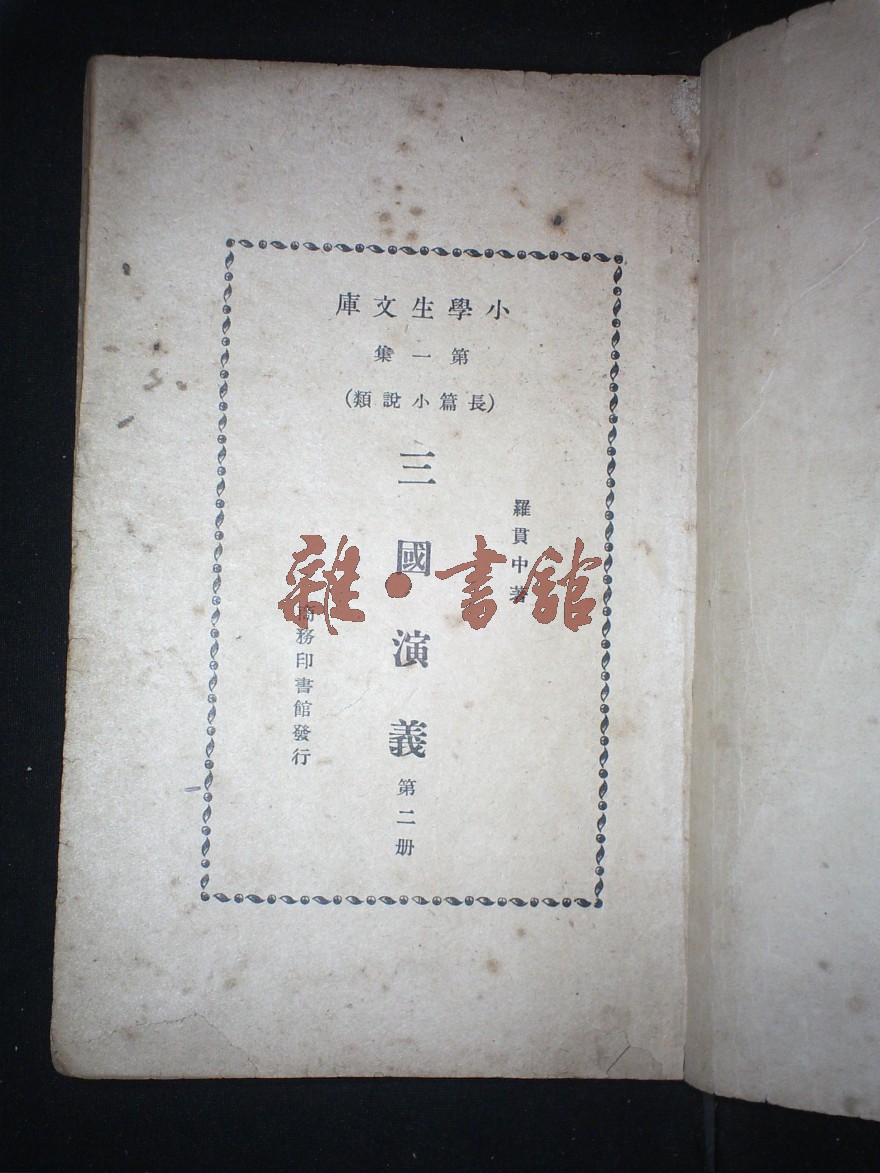 小學生文庫
第一集
(長篇小說類)
羅貫中著
三國演義 第二册
商務印書館發行
雜·書館